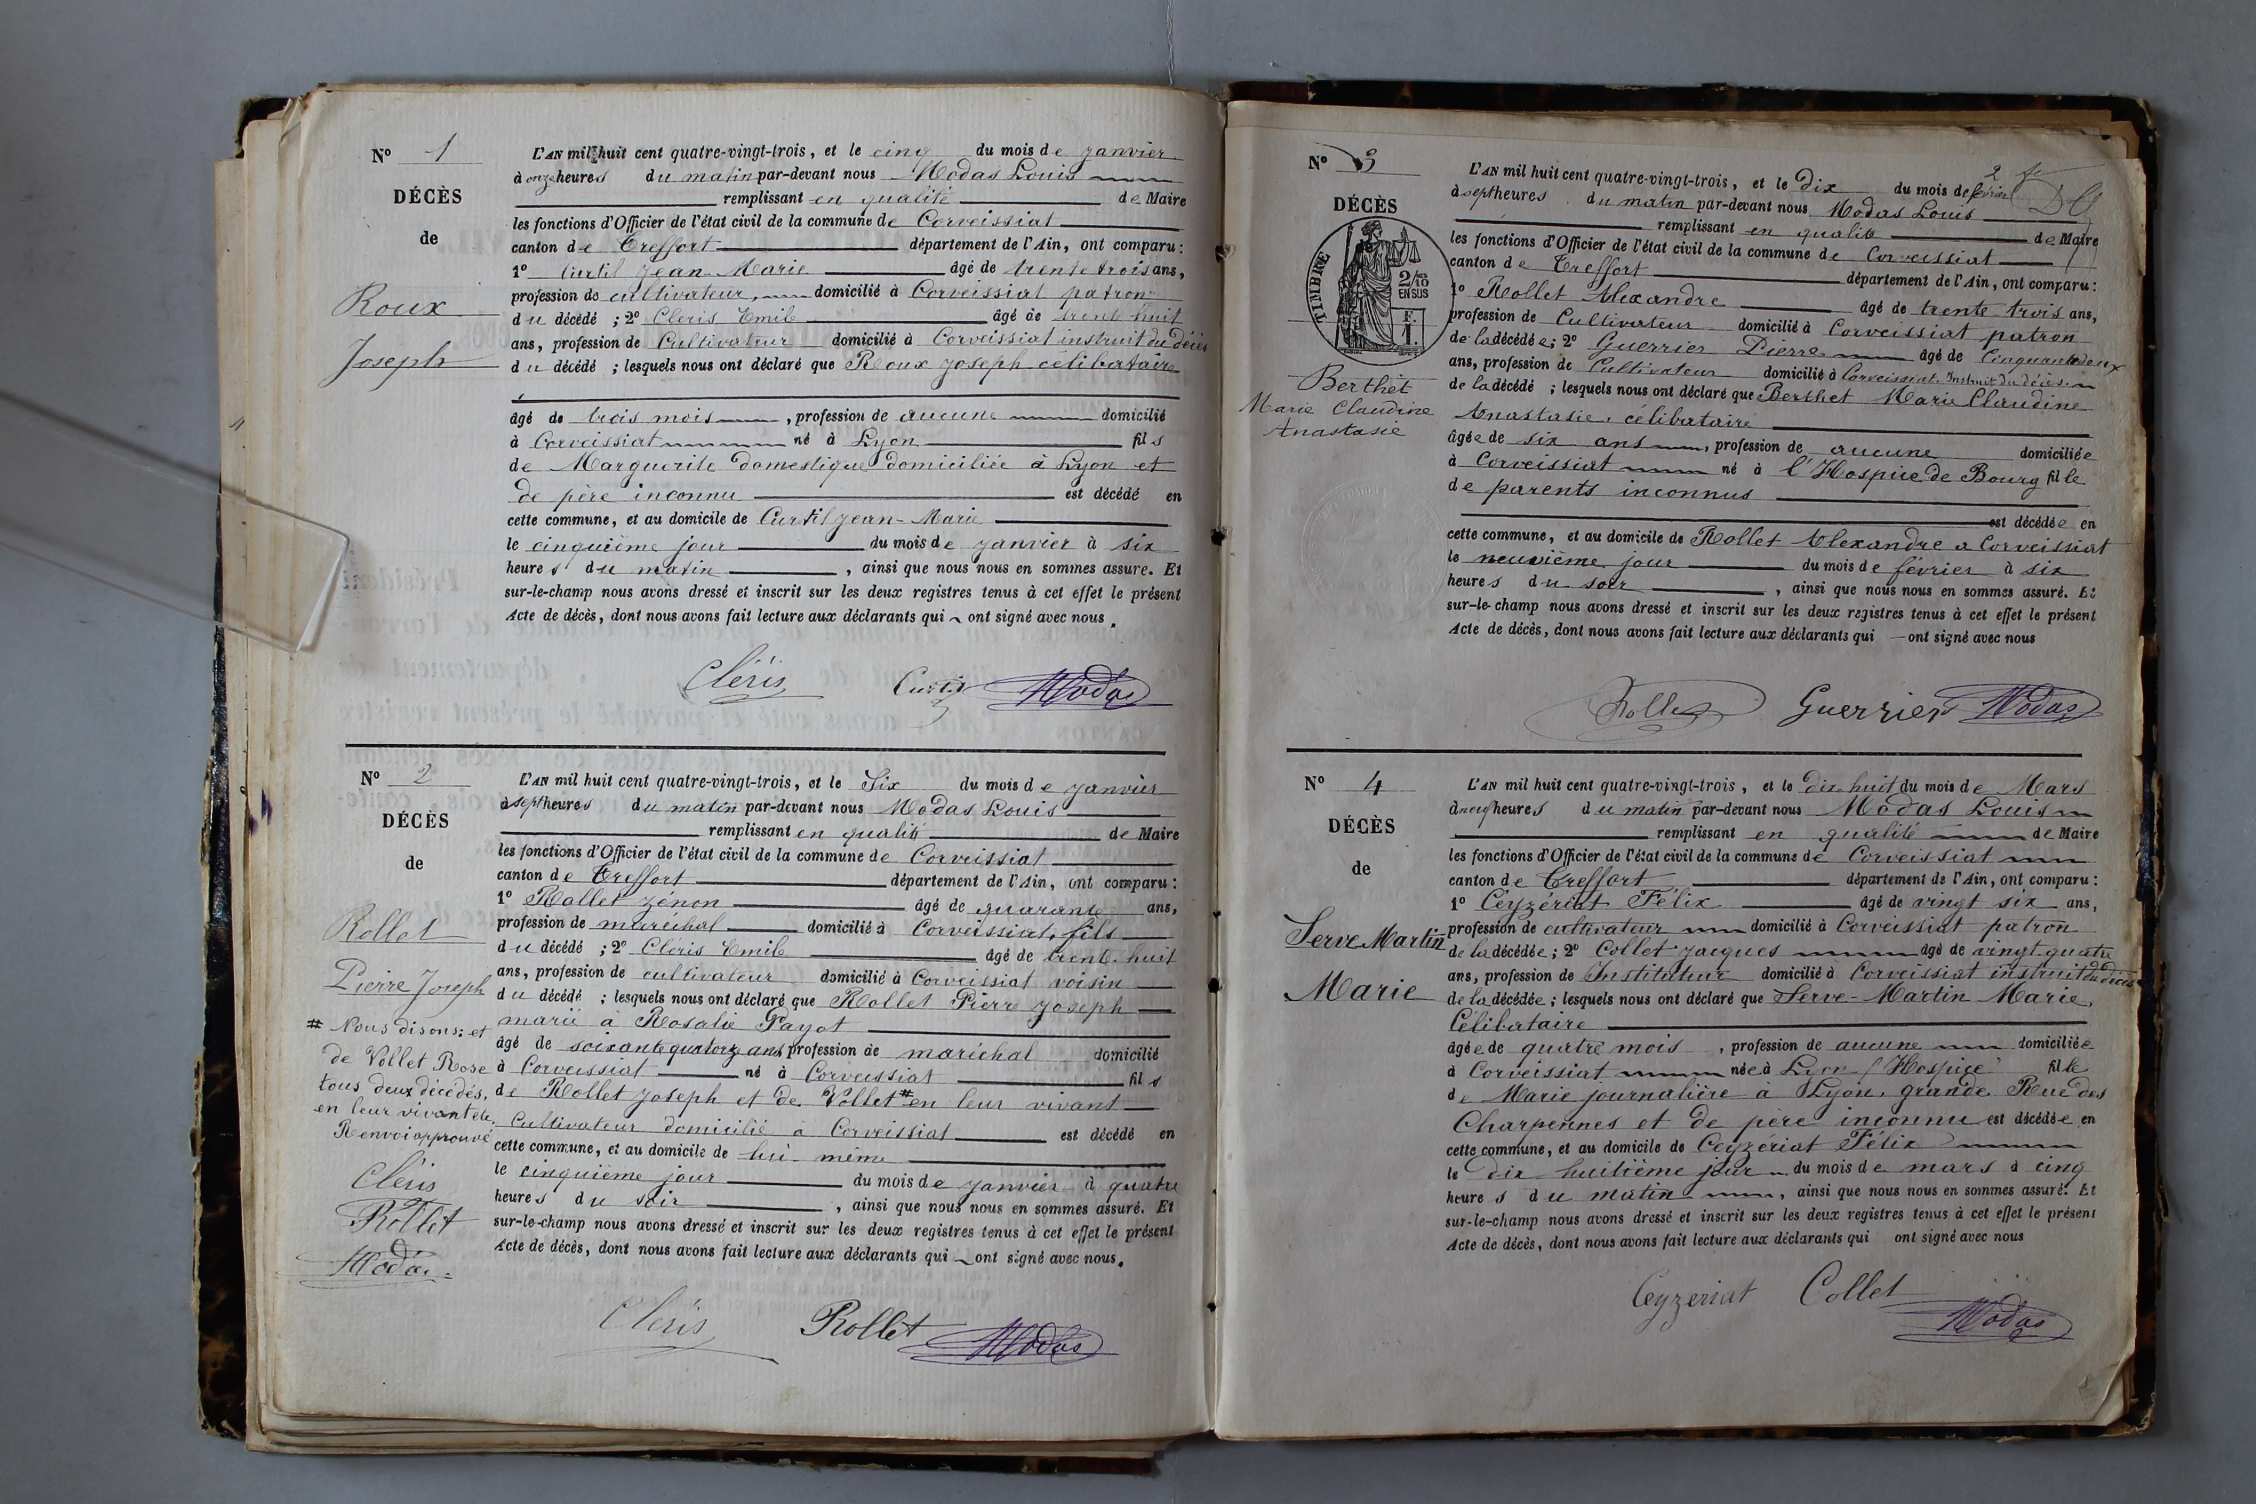 N° 1
DÉCÈS
de
Roux
Joseph
L'AN mil huit cent quatre-vingt-trois, et le cinq du mois de janvier
à onze heures du matin par-devant nous Modas Louis
remplissant en qualité de Maire
les fonctions d'Officier de l'état civil de la commune de Corveissiat
canton de Treffort département de l'Ain, ont comparu :
1° Curtil Jean-Marie âgé de trente trois ans,
profession de cultivateur, domicilié à Corveissiat patron
du décédé ; 2° Cléris Emile âgé de trente huit
ans, profession de Cultivateur domicilié à Corveissiat instruit du décès
du décédé ; lesquels nous ont déclaré que Roux Joseph célibataire
âgé de trois mois, profession de aucune domicilié
à Corveissiat né à Lyon fils
de Marguerite domestique domiciliée à Lyon et
de père inconnu est décédé en
cette commune, et au domicile de Curtil Jean-Marie
le cinquième jour du mois de janvier à six
heures du matin, ainsi que nous nous en sommes assuré. Et
sur-le-champ nous avons dressé et inscrit sur les deux registres tenus à cet effet le présent
Acte de décès, dont nous avons fait lecture aux déclarants qui ont signé avec nous.
Cléris Curtil Modas
N° 2
DÉCÈS
de
Rollet
Pierre Joseph
# Nous disons : et
de Vollet Rose
tous deux décédés,
en leur vivant etc.
Renvoi approuvé
Cléris
Rollet
Modas
L'AN mil huit cent quatre-vingt-trois, et le Six du mois de janvier
à sept heures du matin par-devant nous Modas Louis
remplissant en qualité de Maire
les fonctions d'Officier de l'état civil de la commune de Corveissiat
canton de Treffort département de l'Ain, ont comparu :
1° Rollet Zénon âgé de quarante ans,
profession de maréchal domicilié à Corveissiat, fils
du décédé ; 2° Cléris Emile âgé de trente-huit
ans, profession de cultivateur domicilié à Corveissiat voisin
du décédé ; lesquels nous ont déclaré que Rollet Pierre Joseph
marié à Rosalie Payot
âgé de soixante quatorze ans, profession de maréchal domicilié
à Corveissiat né à Corveissiat fils
de Rollet Joseph et de Vollet # en leur vivant
Cultivateur domicilié à Corveissiat est décédé en
cette commune, et au domicile de lui-même
le cinquième jour du mois de janvier à quatre
heures du soir, ainsi que nous nous en sommes assuré. Et
sur-le-champ nous avons dressé et inscrit sur les deux registres tenus à cet effet le présent
Acte de décès, dont nous avons fait lecture aux déclarants qui ont signé avec nous.
Cléris Rollet Modas
N° 3
DÉCÈS
TIMBRE
2/10
EN SUS
F.
1.
Berthet
Marie Claudine
Anastasie
2 fe
L'AN mil huit cent quatre-vingt-trois, et le Dix du mois de février
à sept heures du matin par-devant nous Modas Louis
remplissant en qualité de Maire
les fonctions d'Officier de l'état civil de la commune de Corveissiat
canton de Treffort département de l'Ain, ont comparu :
1° Rollet Alexandre âgé de trente-trois ans,
profession de Cultivateur domicilié à Corveissiat patron
de la décédée ; 2° Guerrier Pierre âgé de Cinquante deux
ans, profession de Cultivateur domicilié à Corveissiat. Instruit du décès.
de la décédé ; lesquels nous ont déclaré que Berthet Marie Claudine
Anastasie, célibataire
âgée de six ans, profession de aucune domiciliée
à Corveissiat né à l'Hospice de Bourg fille
de parents inconnus
est décédée en
cette commune, et au domicile de Rollet Alexandre à Corveissiat
le neuvième jour du mois de février à six
heures du soir, ainsi que nous nous en sommes assuré. Et
sur-le-champ nous avons dressé et inscrit sur les deux registres tenus à cet effet le présent
Acte de décès, dont nous avons fait lecture aux déclarants qui ont signé avec nous
Rollet Guerrier Modas
N° 4
DÉCÈS
de
Serve Martin
Marie
L'AN mil huit cent quatre-vingt-trois, et le dix-huit du mois de Mars
à neuf heures du matin par-devant nous Modas Louis
remplissant en qualité de Maire
les fonctions d'Officier de l'état civil de la commune de Corveissiat
canton de Treffort département de l'Ain, ont comparu :
1° Ceyzériat Félix âgé de vingt six ans,
profession de cultivateur domicilié à Corveissiat patron
de la décédée ; 2° Collet Jacques âgé de vingt-quatre
ans, profession de Instituteur domicilié à Corveissiat instruit du décès
de la décédée ; lesquels nous ont déclaré que Serve-Martin Marie,
Célibataire
âgée de quatre mois, profession de aucune domiciliée
à Corveissiat née à Lyon (Hospice) fille
de Marie journalière à Lyon, grande Rue des
Charpennes et de père inconnu est décédée en
cette commune, et au domicile de Ceyzériat Félix
le dix huitième jour du mois de mars à cinq
heures du matin, ainsi que nous nous en sommes assuré. Et
sur-le-champ nous avons dressé et inscrit sur les deux registres tenus à cet effet le présent
Acte de décès, dont nous avons fait lecture aux déclarants qui ont signé avec nous
Ceyzeriat Collet Modas